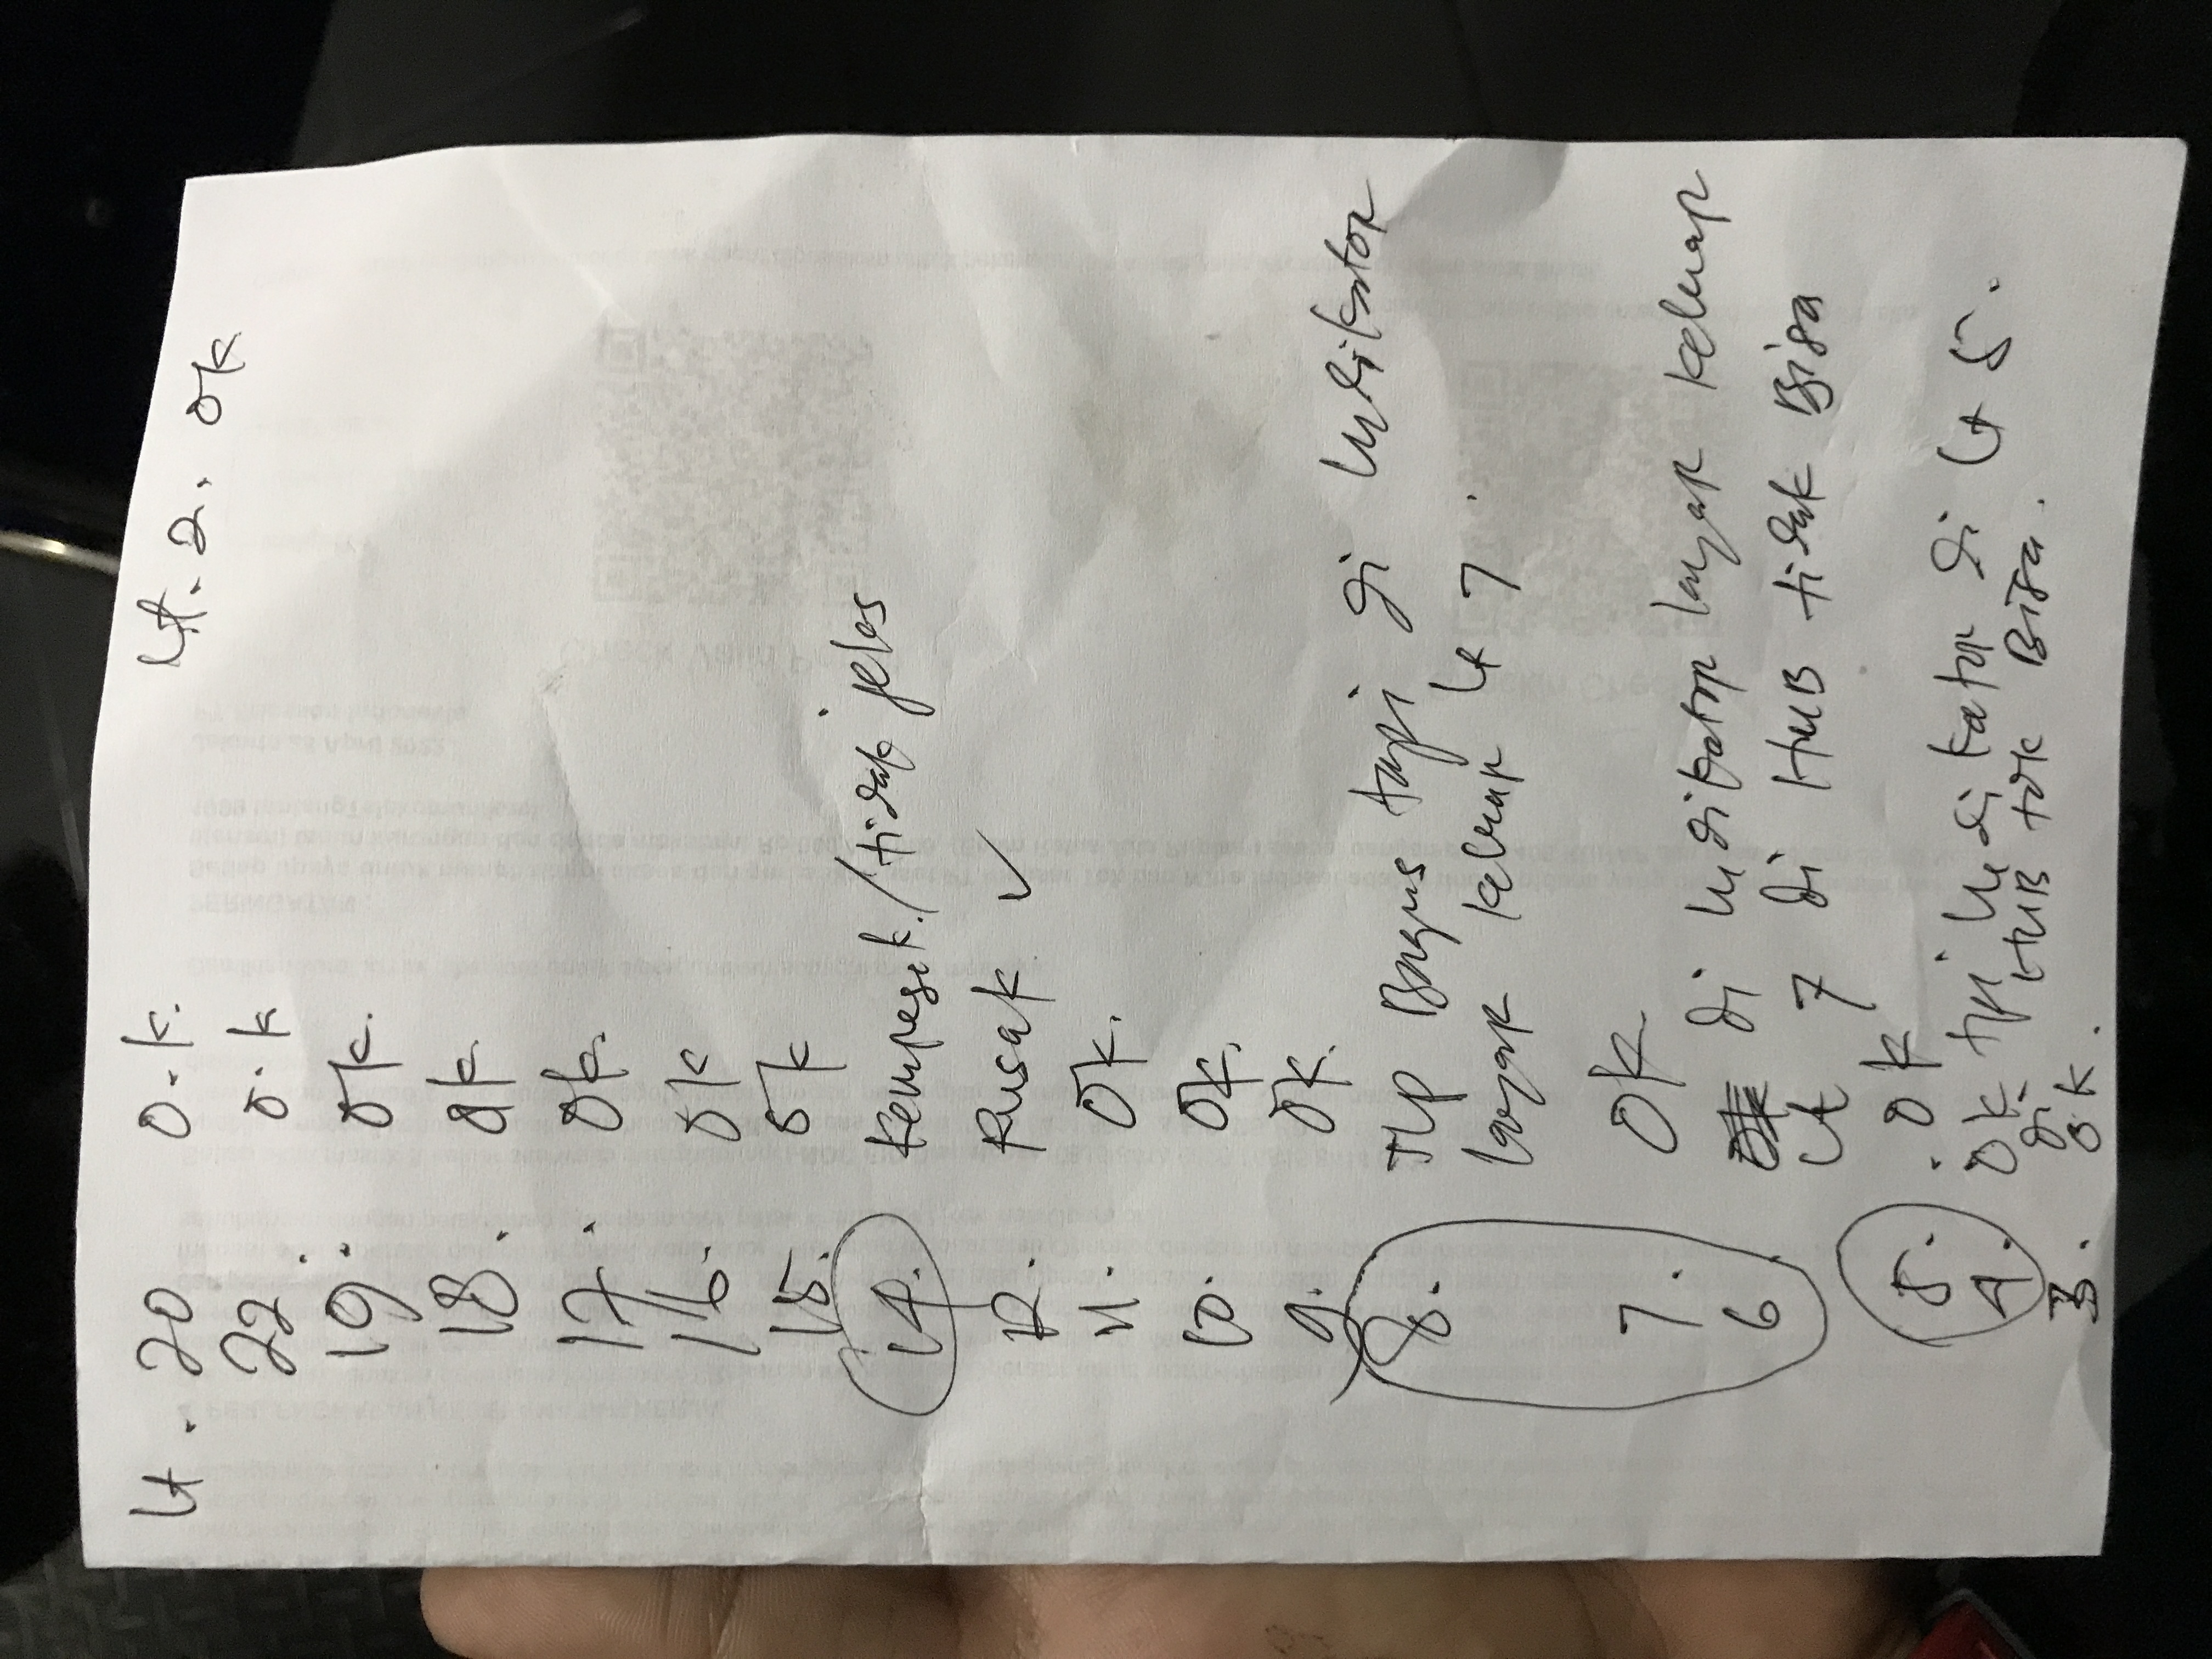 Lt. 20 O.K.
Lt. 2. OK
22. O.K
19. OK.
18. OK.
17. OK.
16. OK
15. OK
14. Kemresek./tidak jelas
12. Rusak ✓
11. OK.
10. OK.
9. OK.
8. Tlp Bagus tapi di Indikator
layar keluar Lt 7.
7. OK
6. di Indikator layar keluar
Lt 7 di HUB tidak Bisa
5. . OK
4. OK tpi Indikator di Lt 5.
di HUB tdk Bisa.
3. OK.